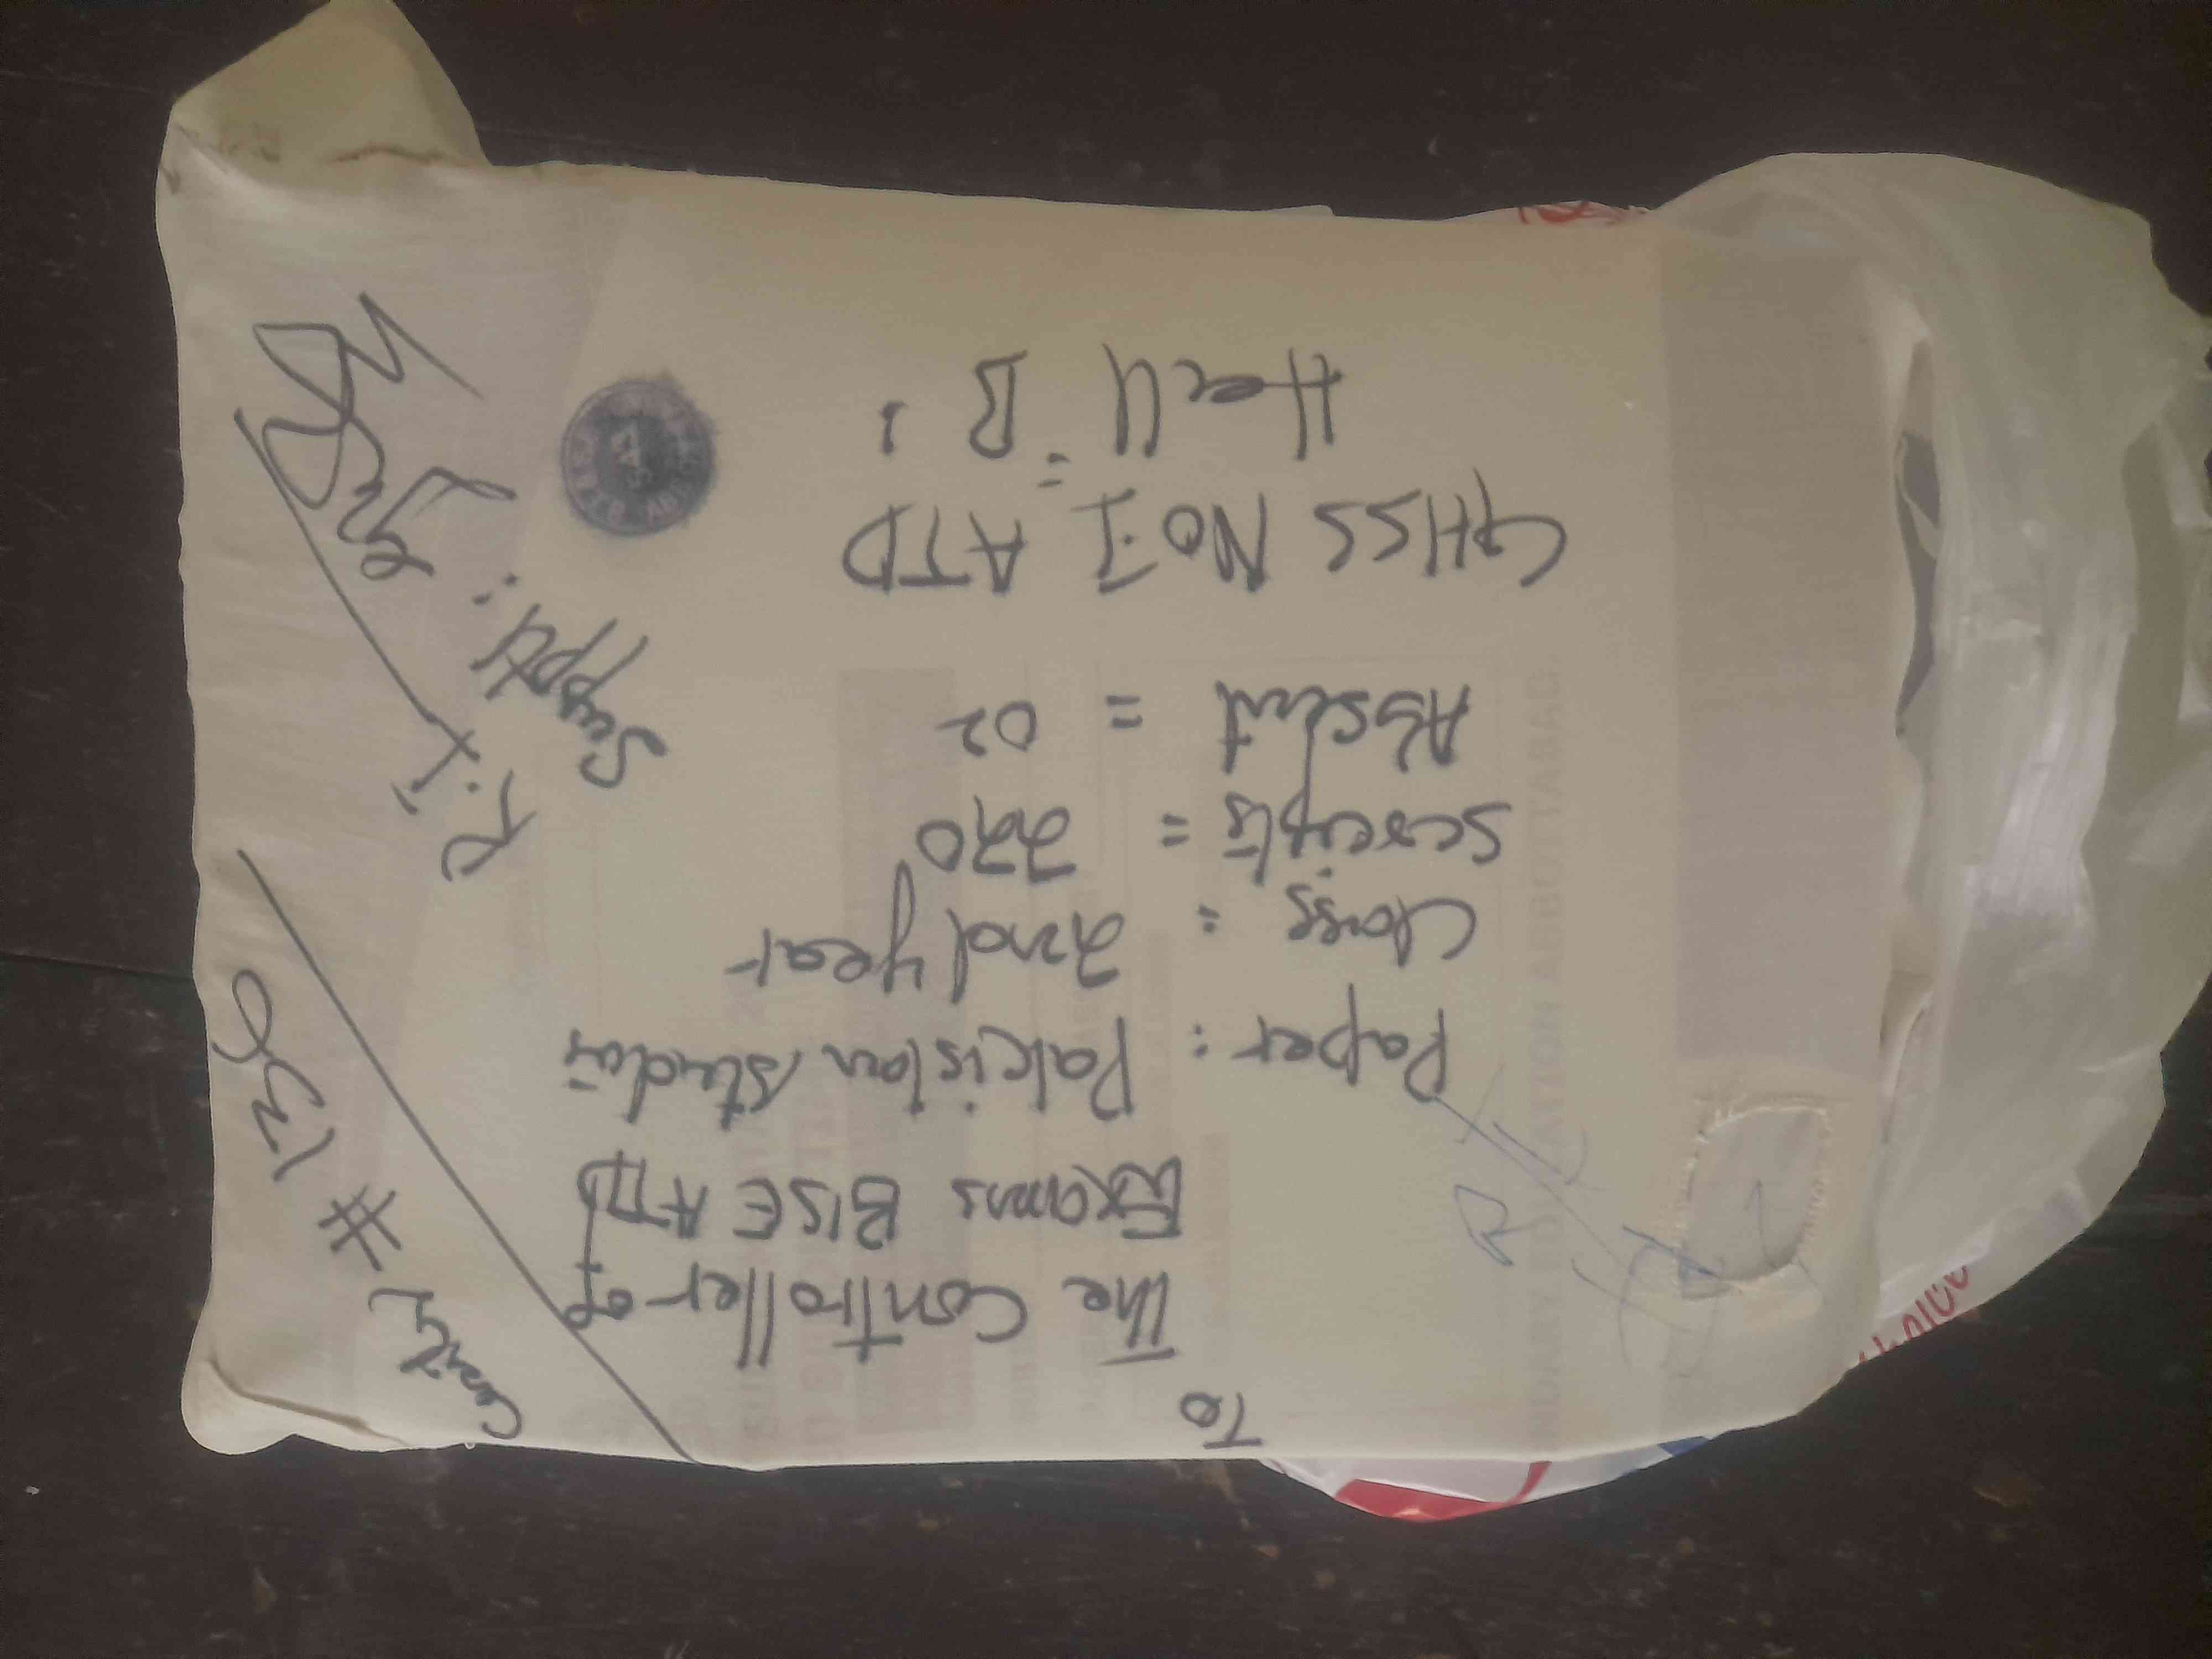 To
The Controller of
Exams BISE ATD
Paper : Pakistan Studies
Class = 2nd year
Scripts = 220
Absent = 02
GHSS No.1 ATD
Hall = B
Centre # 138
R.I
Supptd: